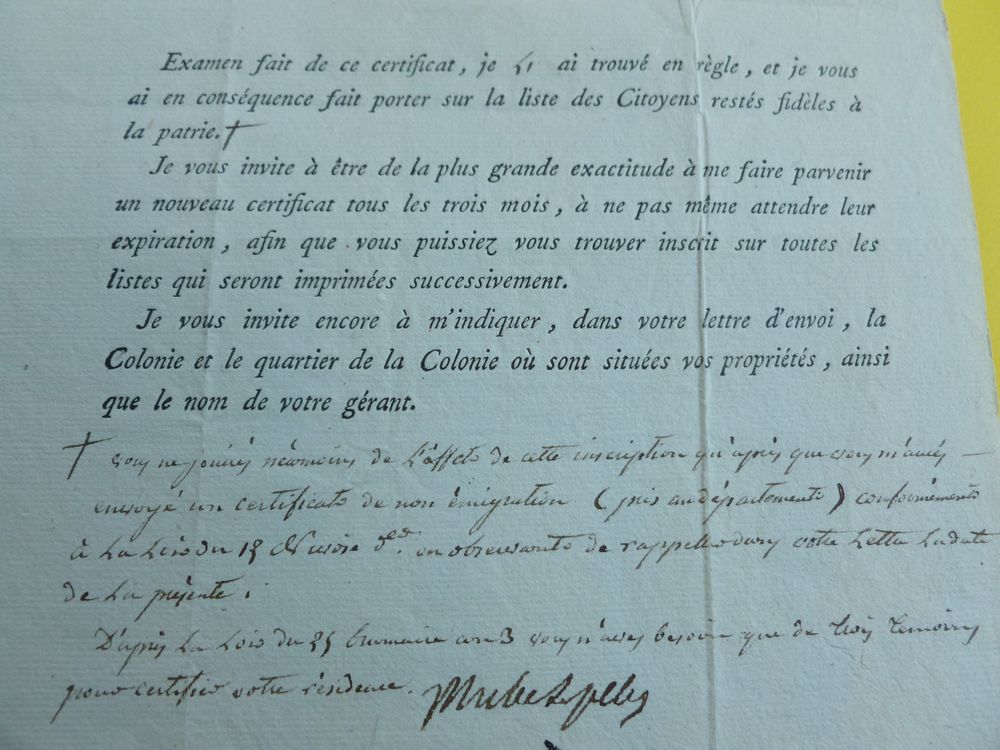 Examen fait de ce certificat, je l' ai trouvé en règle, et je vous
ai en conséquence fait porter sur la liste des Citoyens restés fidèles à
la patrie. †
Je vous invite à être de la plus grande exactitude à me faire parvenir
un nouveau certificat tous les trois mois, à ne pas même attendre leur
expiration, afin que vous puissiez vous trouver inscrit sur toutes les
listes qui seront imprimées successivement.
Je vous invite encore à m'indiquer, dans votre lettre d'envoi, la
Colonie et le quartier de la Colonie où sont situées vos propriétés, ainsi
que le nom de votre gérant.
† vous ne jouirés néanmoins de L'effet de cette inscription qu'après que vous m'aurés
envoyé un certificat de non émigration (pris au département) conformément
à La Loi du en observant de rappeller dans votre Lettre La date
de La présente.
D'après La Loi du 25 brumaire an 3 vous n'avez besoin que de trois témoins
pour certifier votre résidence.